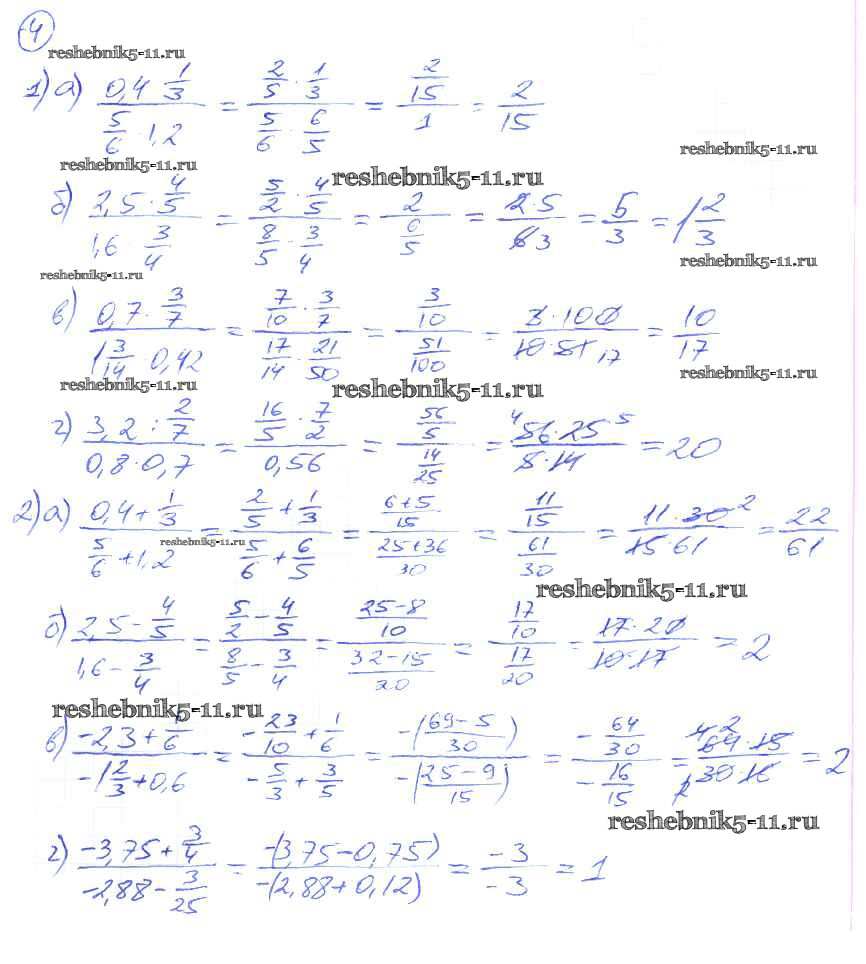 4
reshebnik5-11.ru
1) а) (0,4 · 1/3)/(5/6 · 1,2) = (2/5 · 1/3)/(5/6 · 6/5) = (2/15)/1 = 2/15
reshebnik5-11.ru
reshebnik5-11.ru reshebnik5-11.ru
б) (2,5 · 4/5)/(1,6 · 3/4) = (5/2 · 4/5)/(8/5 · 3/4) = 2/(6/5) = (2·5)/(6 3) = 5/3 = 1 2/3
reshebnik5-11.ru
reshebnik5-11.ru
в) (0,7 · 3/7)/(1 3/14 · 0,42) = (7/10 · 3/7)/(17/14 · 21/50) = (3/10)/(51/100) = (3·100)/(10·51 17) = 10/17
reshebnik5-11.ru reshebnik5-11.ru reshebnik5-11.ru
г) (3,2 : 2/7)/(0,8·0,7) = (16/5 · 7/2)/0,56 = (56/5)/(14/25) = (4 56·25 5)/(5·14) = 20
2) а) (0,4 + 1/3)/(5/6 + 1,2) = (2/5 + 1/3)/(5/6 + 6/5) = ((6+5)/15)/((25+36)/30) = (11/15)/(61/30) = (11·30 2)/(15·61) = 22/61
reshebnik5-11.ru
reshebnik5-11.ru
б) (2,5 - 4/5)/(1,6 - 3/4) = (5/2 - 4/5)/(8/5 - 3/4) = ((25-8)/10)/((32-15)/20) = (17/10)/(17/20) = (17·20)/(10·17) = 2
reshebnik5-11.ru
в) (-2,3 + 1/6)/(-1 2/3 + 0,6) = (-23/10 + 1/6)/(-5/3 + 3/5) = (-((69-5)/30))/(-((25-9)/15)) = (-64/30)/(-16/15) = (4 2 64·15)/(2 30·16) = 2
reshebnik5-11.ru
г) (-3,75 + 3/4)/(-2,88 - 3/25) = (-(3,75-0,75))/(-(2,88+0,12)) = (-3)/(-3) = 1